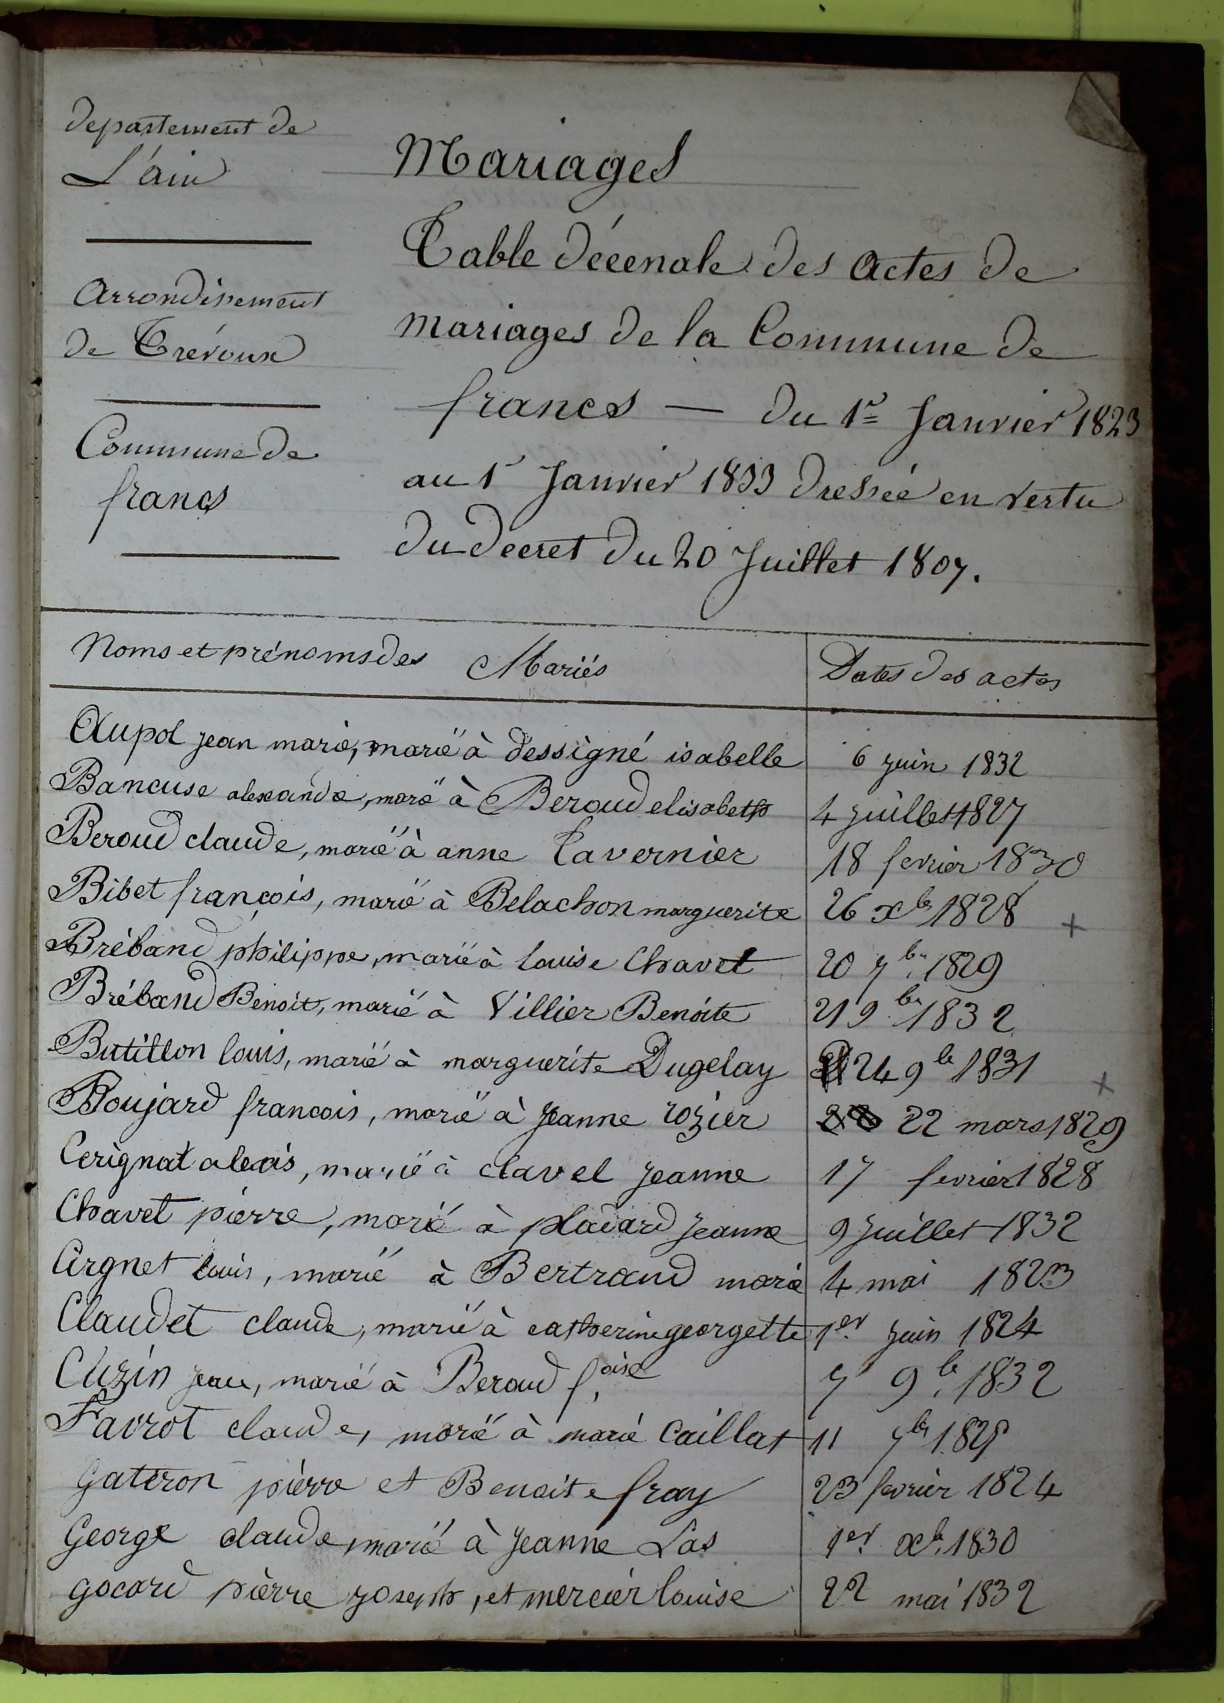 departement de
L'ain
Arrondissement
de Trévoux
Commune de
francs
Mariages
Table décenale des actes de
mariages de la Commune de
francs — du 1r Janvier 1823
au 1r Janvier 1833 dressée en vertu
du decret du 20 Juillet 1807.
Noms et prénoms des Mariés Dates des actes
Aupol jean marie, marié à dessigné isabelle 6 juin 1832
Bancuse alexandre, marié à Beroud elisabeth 4 juillet 1827
Beroud claude, marié à anne Tavernier 18 fevrier 1830
Bibet françois, marié à Belachon marguerite 26 xbr 1828 +
Bréband philippe, marié à louise Chavet 20 7br 1829
Bréband Benoit, marié à Villier Benoite 21 9br 1832
Butillon louis, marié à marguerite Dugelay 24 9br 1831
Boujard francois, marié à Jeanne rozier 22 mars 1829 +
Cerignat alexis, marié à clavel jeanne 17 fevrier 1828
Chavet pierre, marié à pladard jeanne 9 juillet 1832
Cirgnet louis, marié à Bertrand marie 4 mai 1823
Claudet claude, marié à catherine georgette 1er juin 1824
Cuzin jean, marié à Beroud f.oise 7 9br 1832
Favrot claude, marié à marie Caillat 11 7br
Gateron pierre et Benoite fray 23 fevrier 1824
George claude, marié à jeanne Las 1er xbr 1830
gocard pierre joseph, et mercier louise 22 mai 1832